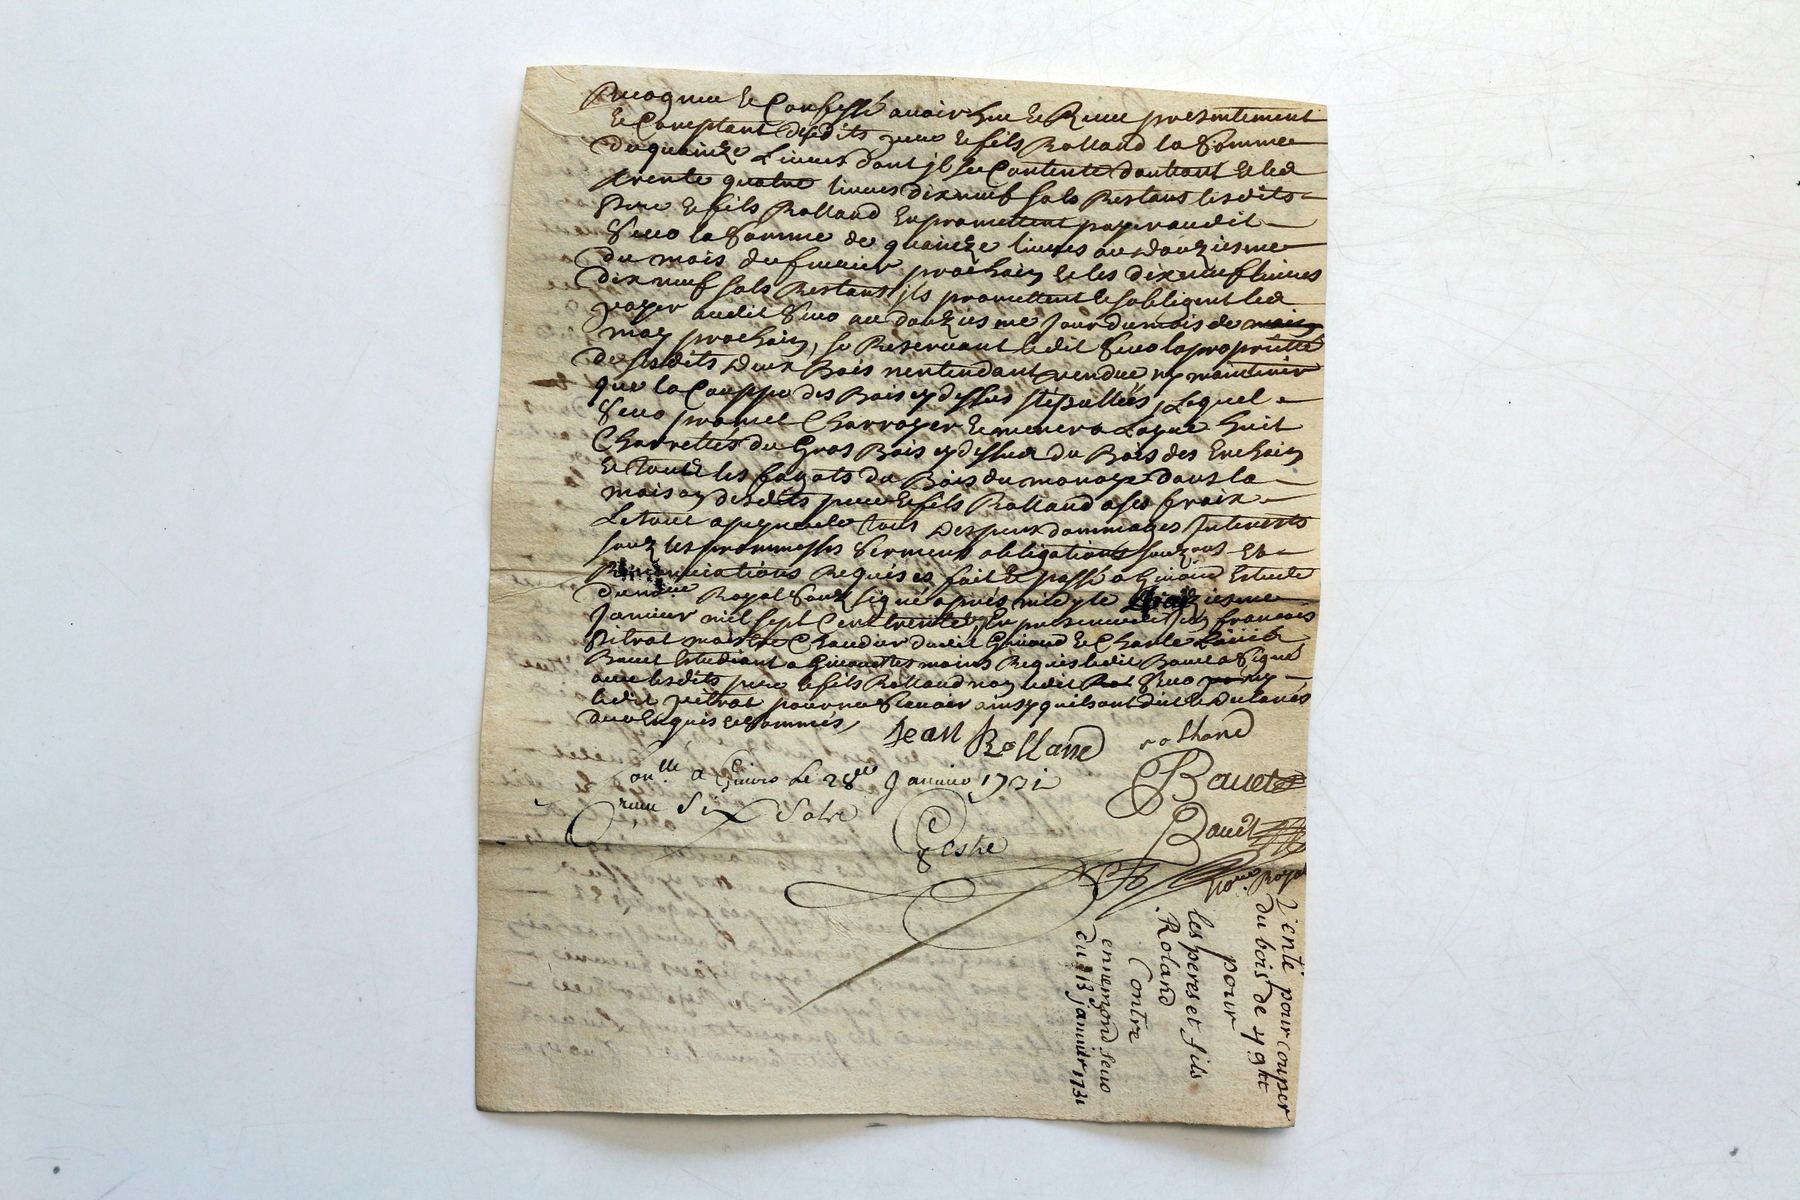 Recogneu et Confessé avoir heu et Receu presentement
et Comptant desdits pere et fils Rolland la Somme
de quainze Livres dont jl se Contente dautant et les
trente quatre livres dixneuf sols Restans lesdits
Pere et fils Rolland en promettent payer audit
Seuo la Somme de quainze livres au douziesme
du mois de fevrier prochain et les dixneuf livres
dixneuf sols Restans jls promettent et sobligent les
payer audit Seuo au douziesme Jour du mois de
may prochain, se Reservant ledit Seuo la proprietté
desdits deux Bois nentendant vendre ny maintenir
que la Couppe des Bois cy dessus stepullés, Lequel
Seuo promet Charroyer et menera huit
Charrettes du Gros Bois cy dessus du Bois des
et toutes les fagots du Bois du dans la
maison desdits pere et fils Rolland a ses fraix
Le tout a peyne de tous Despens dommages Interests
souz les prommesses Serment obligations et
Renonciations Requises fait et passé a Estude
du no.re Royal Souz signé apres midy le
Janvier mil sept Cent trente en presence de francois
Pitrat maistre dudit et Charle
Bauet Estudiant a Requis ledit Bauet a Signé
avec lesdits pere et fils Rolland non ledit Seuo ny
ledit pitrat pour ne scavoir ainsy quils ont dit et Declarés
de ce Enquis et Sommés,
Jean Rolland rolland
Bauet
Con.lle a le 28.e Janvier 1731
receu six sols
Bauet
Geste
no.re Royal
Vente pour couper
du bois de 49 tt
pour
les peres et fils
Roland
Contre
ennemond seuo
du 13 janvier 1731